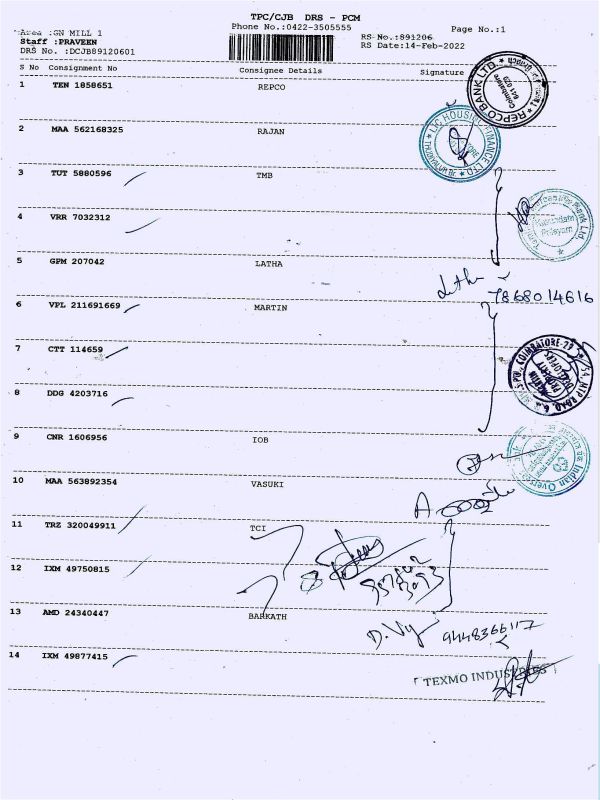 TPC/CJB DRS - PCM
Phone No.:0422-3505555
Page No.:1
Area :GN MILL 1
Staff :PRAVEEN
DRS No. :DCJB89120601
RS-No.:891206
RS Date:14-Feb-2022
S No Consignment No Consignee Details Signature
1 TEN 1858651 REPCO
REPCO BANK LTD.
Coimbatore
641 029
2 MAA 562168325 RAJAN
LIC HOUSING FINANCE LTD
3 TUT 5880596 TMB
4 VRR 7032312
5 GPM 207042 LATHA
Latha
7868014616
6 VPL 211691669 MARTIN
7 CTT 114659
MARTIN
PROPERTY
DEVELOPERS
8 DDG 4203716
9 CNR 1606956 IOB
10 MAA 563892354 VASUKI
11 TRZ 320049911 TCI
12 IXM 49750815
13 AMD 24340447 BARKATH
D. Vij
9448366117
14 IXM 49877415
TEXMO INDUSTRIES